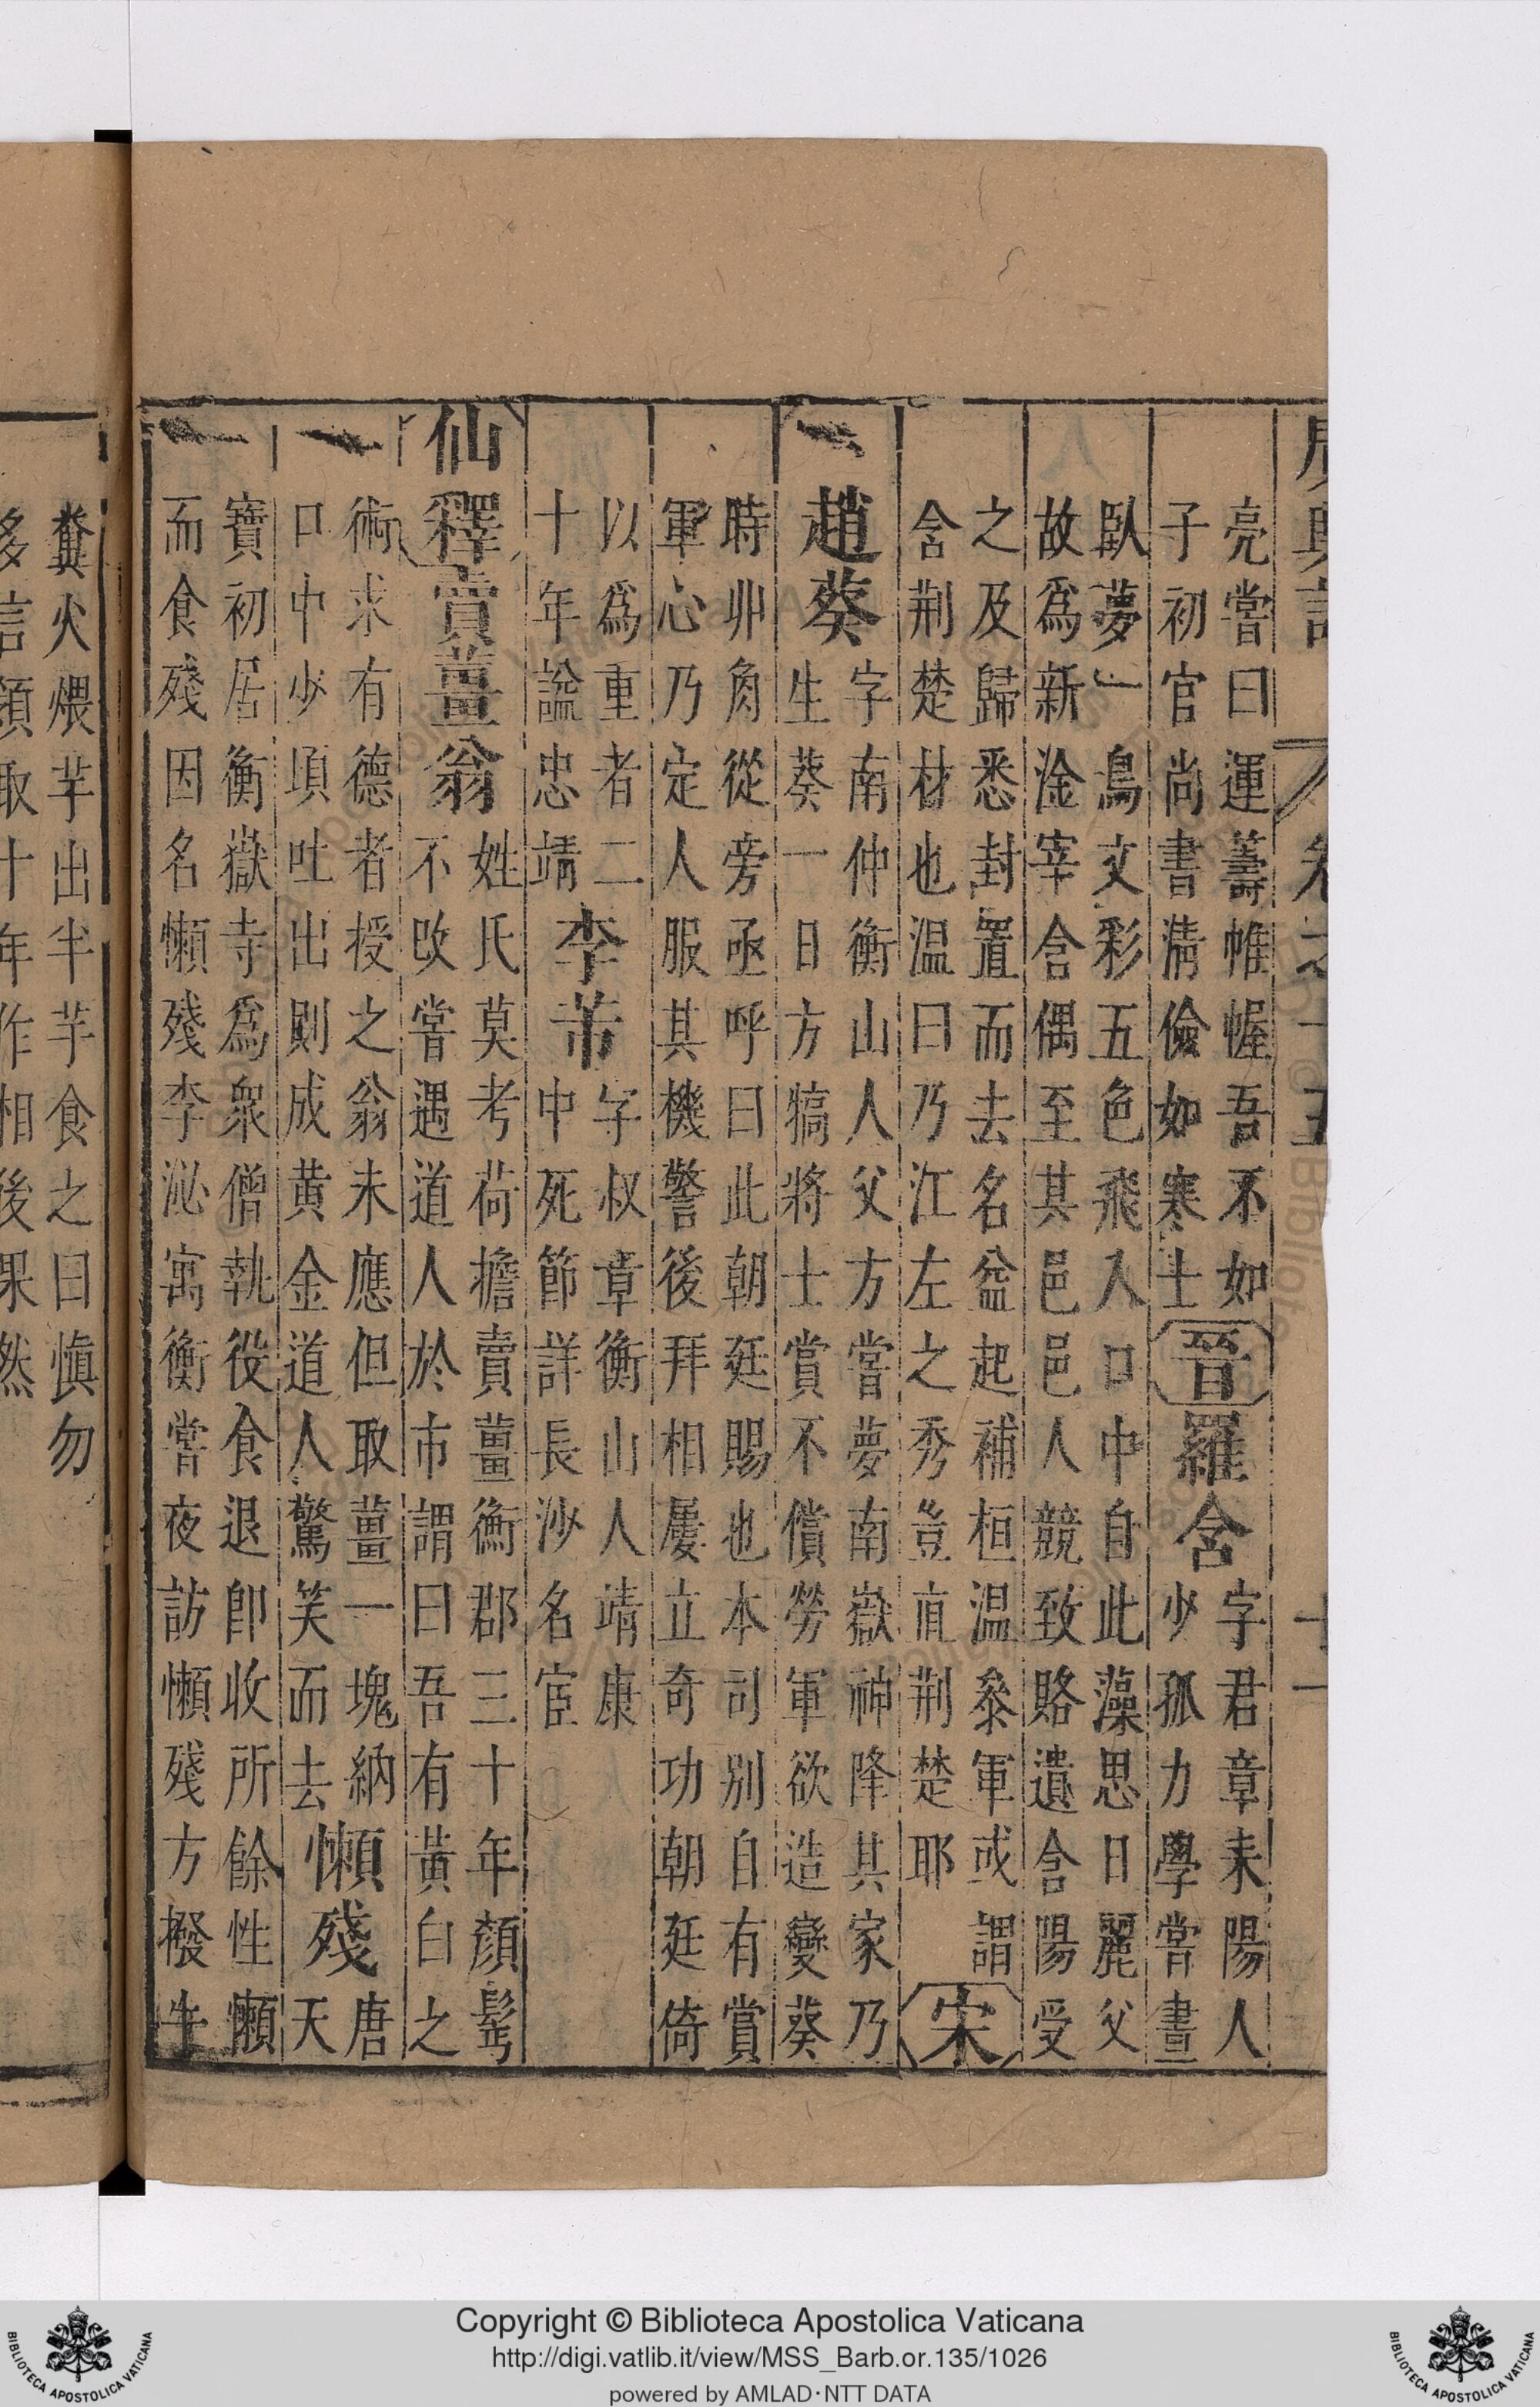 亮嘗曰運籌帷幄吾不如
子初官尚書清儉如寒士
晉
羅含
字君章耒陽人
少孤力學嘗晝
臥夢一鳥文彩五色飛入口中自此藻思日麗父
故爲新淦宰含偶至其邑邑人競致賂遺含陽受
之及歸悉封置而去名益起補桓温叅軍或謂
含荆楚材也温曰乃江左之秀豈亶荆楚耶
宋
趙葵
字南仲衡山人父方嘗夢南嶽神降其家乃
生葵一日方犒將士賞不償勞軍欲造變葵
時丱角從旁亟呼曰此朝廷賜也本司别自有賞
軍心乃定人服其機警後拜相屢立奇功朝廷倚
以爲重者二
十年諡忠靖
李芾
字叔章衡山人靖康
中死節詳長沙名宦
仙釋
賣薑翁
姓氏莫考荷擔賣薑衡郡三十年顏髩
不改嘗遇道人於市謂曰吾有黃白之
術求有德者授之翁未應但取薑一塊納
口中少頃吐出則成黄金道人驚笑而去
懶殘
唐
天
寶初居衡嶽寺爲衆僧執役食退卽收所餘性懶
而食殘因名懶殘李泌寓衡嘗夜訪懶殘方撥牛
糞火煨芋出半芋食之曰慎勿
多言領取十年作相後果然
卷之十五
十一
Copyright © Biblioteca Apostolica Vaticana
http://digi.vatlib.it/view/MSS_Barb.or.135/1026
powered by AMLAD·NTT DATA
BIBLIOTECA APOSTOLICA VATICANA
BIBLIOTECA APOSTOLICA VATICANA